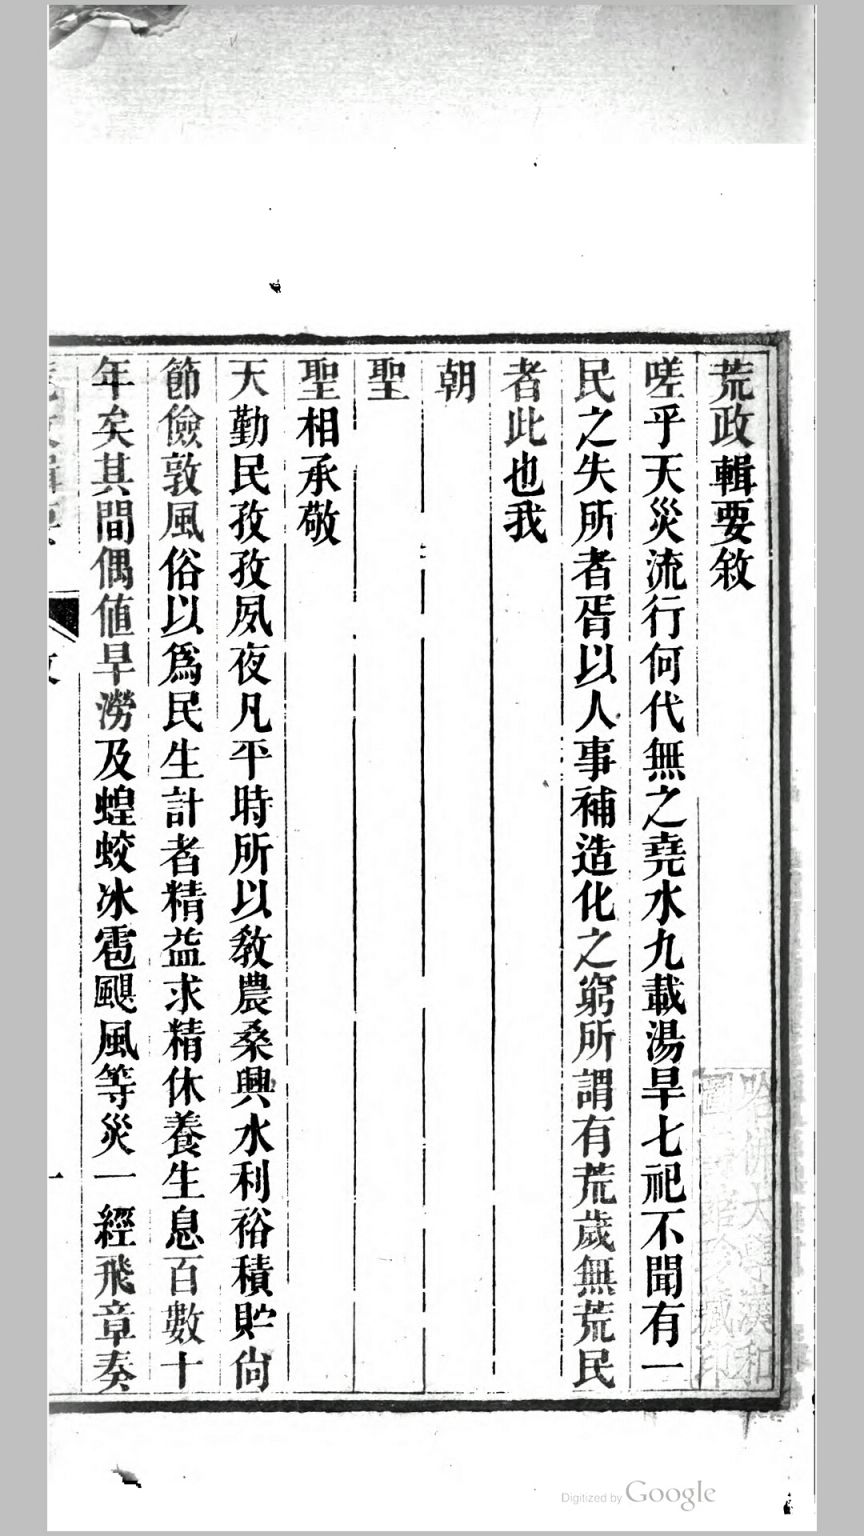 荒政輯要敘
嗟乎天災流行何代無之堯水九載湯旱七祀不聞有一
民之失所者胥以人事補造化之窮所謂有荒歲無荒民
者此也我
朝
聖
聖相承敬
天勤民孜孜夙夜凡平時所以教農桑興水利裕積貯尙
節儉敦風俗以爲民生計者精益求精休養生息百數十
年矣其間偶値旱澇及蝗蛟冰雹颶風等災一經飛章奏
一
哈佛大學漢和
圖書館珍藏印
Digitized by Google